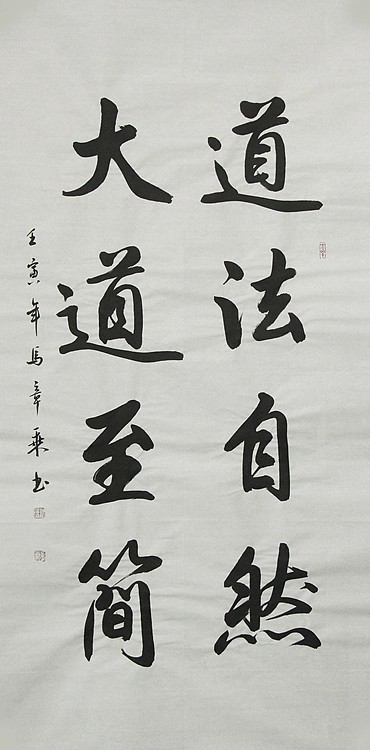 道法自然
大道至簡
壬寅年馬章乘书